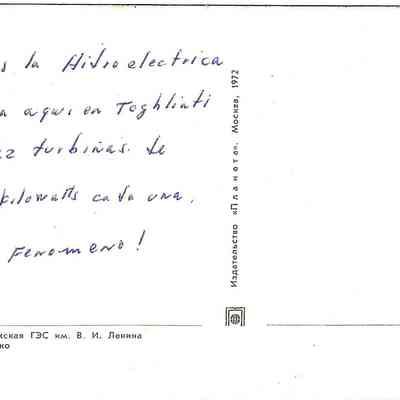 s la Hidroelectrica
a aqui en Toghliati
2 turbinas. de
kilowatts cada una.
Fenomeno!
Издательство «Планета». Москва, 1972
жская ГЭС им. В. И. Ленина
ко